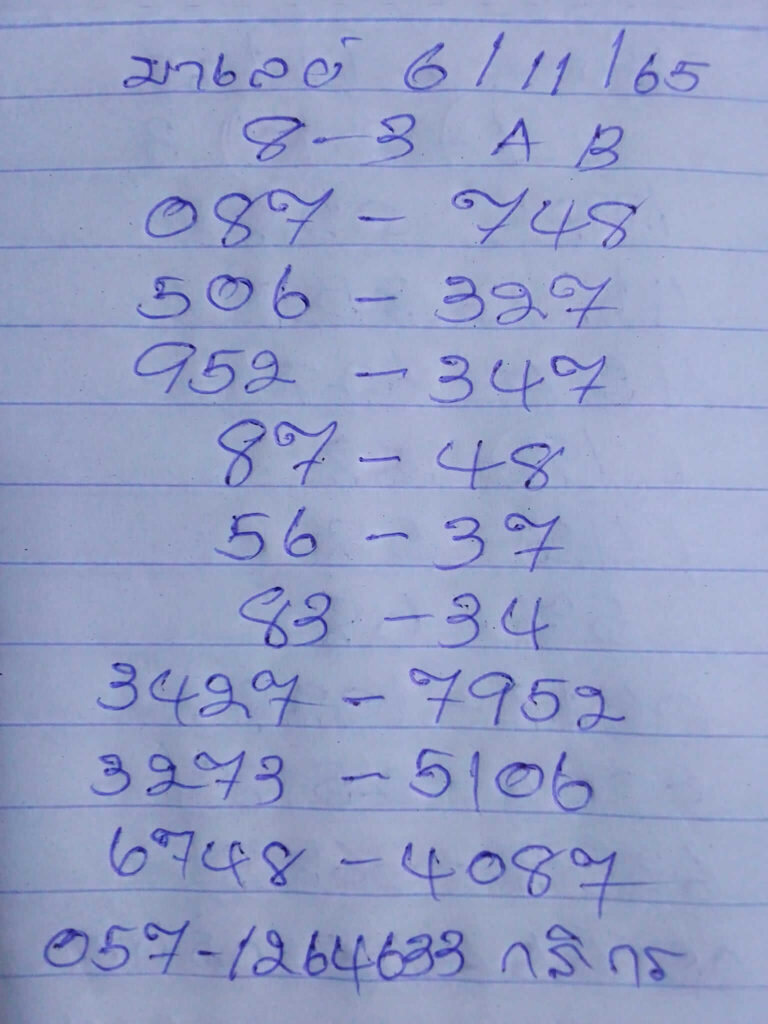 มาเลย์ 6/11/65
8-3 A B
087 - 748
506 - 327
952 - 347
87 - 48
56 - 37
83 - 34
3427 - 7952
3273 - 5106
6748 - 4087
057-1264633 กสิกร